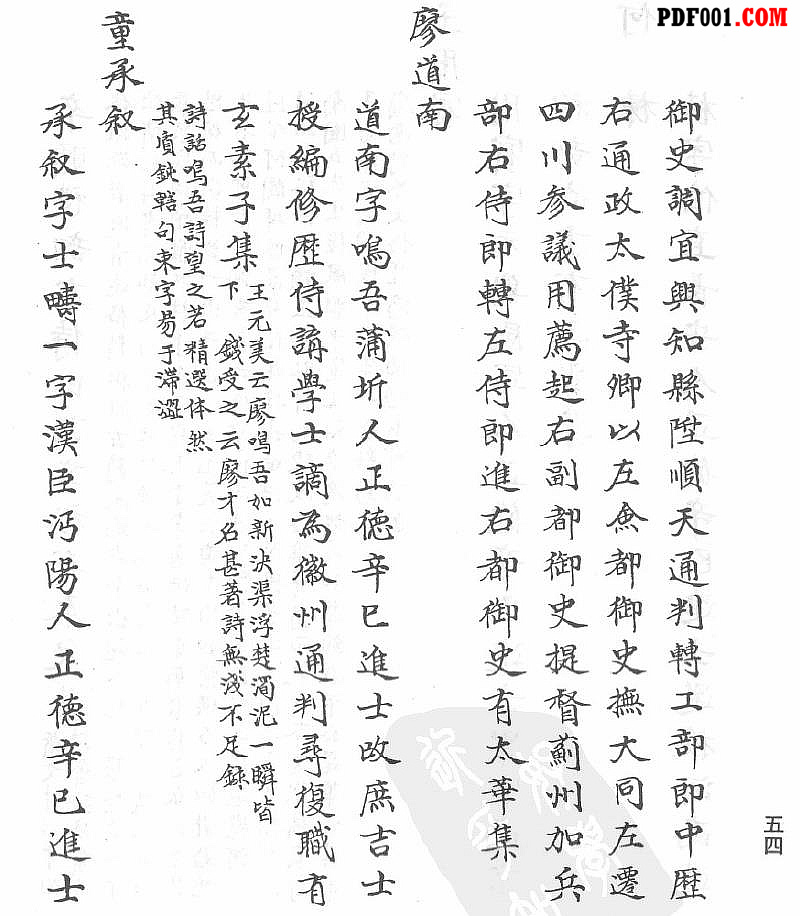 PDF001.COM
御史謫宜興知縣陞順天通判轉工部郎中歷
右通政太僕寺卿以左僉都御史撫大同左遷
四川參議用薦起右副都御史提督薊州加兵
部右侍郎轉左侍郎進右都御史有太華集
廖道南
道南字鳴吾蒲圻人正德辛巳進士改庶吉士
授編修歷侍講學士謫為徽州通判尋復職有
玄素子集
王元美云廖鳴吾如新決渠浮楚濁泥一瞬皆
下 錢受之云廖才名甚著詩無淺不足錄
詩話鳴吾詩望之若精選体然
其質鈍轄句束字易于滯澀
童承叙
承叙字士疇一字漢臣沔陽人正德辛巳進士
五四